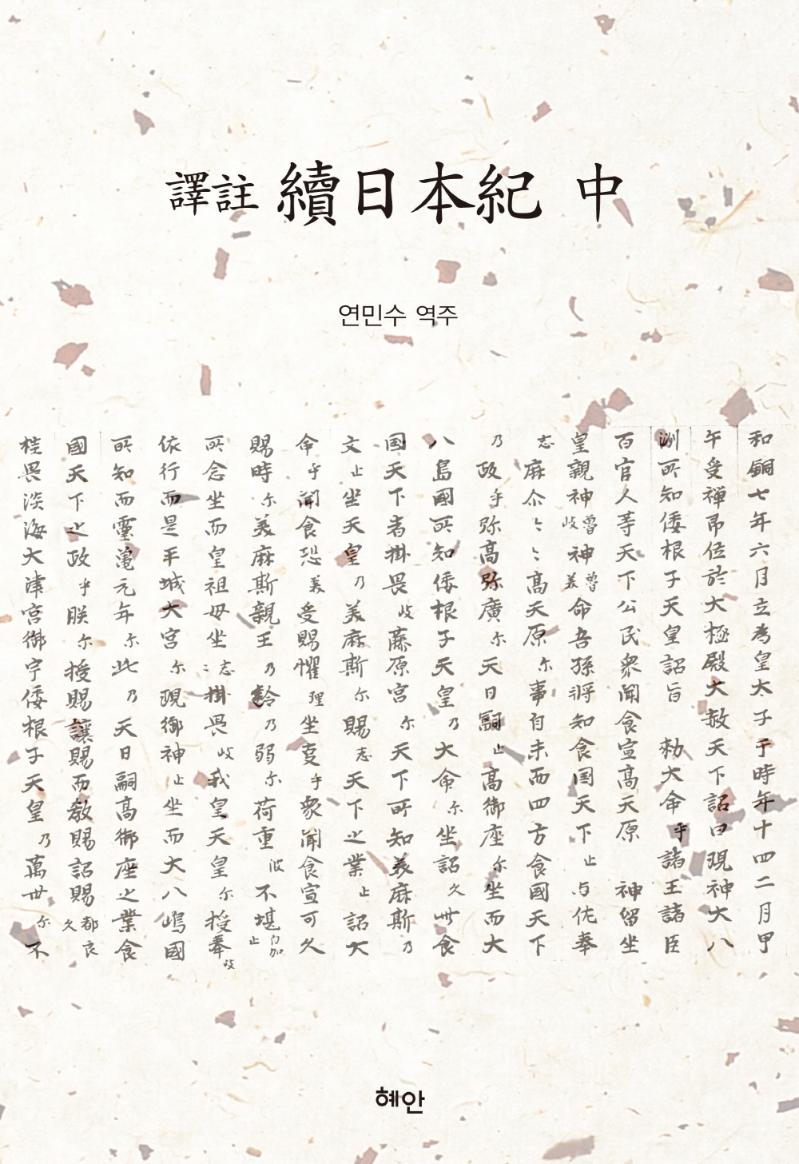 譯註 續日本紀 中
연민수 역주
和銅七年六月立為皇太子于時年十四二月甲
午受禪即位於大極殿大赦天下詔曰現神大八
洲所知倭根子天皇詔旨 勅大命乎諸王諸臣
百官人等天下公民衆聞食宣高天原 神留坐
皇親神魯岐神魯美命吾孫將知食国天下止与佐奉
志麻尓々々高天原尓事自未而四方食國天下
乃政乎弥高弥廣尓天日嗣止高御座尓坐而大
八島國所知倭根子天皇乃大命尓坐詔久此食
国天下者掛畏岐藤原宮尓天下所知美麻斯乃
父止坐天皇乃美麻斯尓賜志天下之業止詔大
命乎聞食恐美受賜懼理坐事乎衆聞食宣可久
賜時尓美麻斯親王乃齡乃弱尓荷重波不堪
所念坐而皇祖母坐志々掛畏岐我皇天皇尓授奉岐
依行而是平城大宮尓現御神止坐而大八嶋國
所知而靈龜元年尓此乃天日嗣高御座之業食
國天下之政乎朕尓授賜讓賜而教賜詔賜都良久
桂畏淡海大津宮御宇倭根子天皇乃萬世尓不
혜안